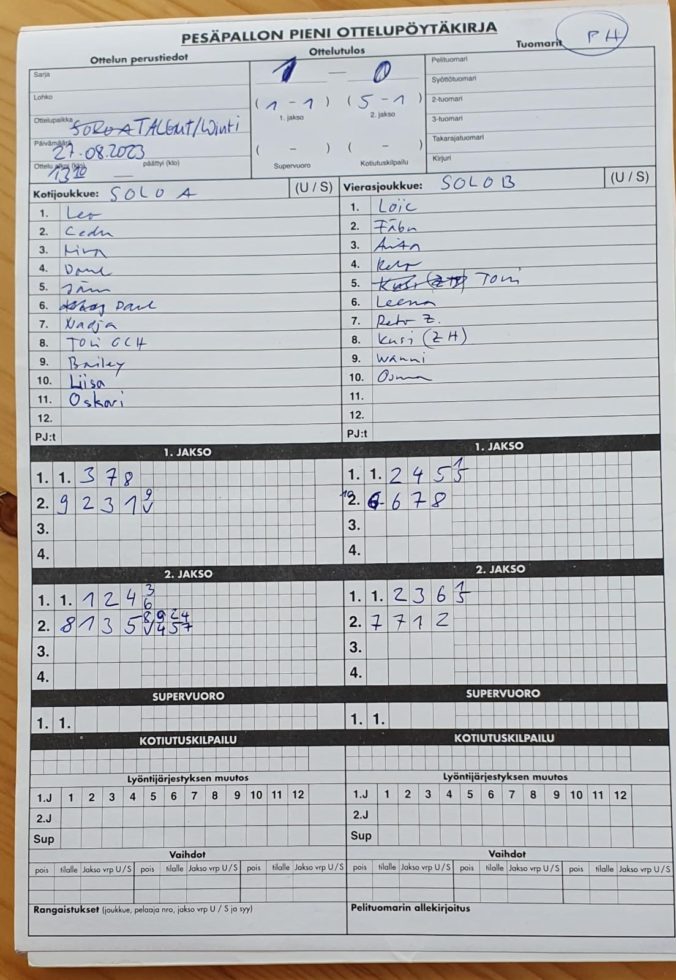 PESÄPALLON PIENI OTTELUPÖYTÄKIRJA
Ottelun perustiedot
Ottelutulos
Tuomarit PH
Sarja
1 - 0
Pelituomari
Syöttötuomari
Lohko
(1 - 1) (5 - 1)
2-tuomari
Ottelupaikka TALGUT/Winti
1. jakso 2. jakso
3-tuomari
Päivämäärä 27.08.2023
( - ) ( - )
Takarajatuomari
Ottelu alkoi (klo) 1310 päättyi (klo)
Supervuoro Kotiutuskilpailu
Kirjuri
Kotijoukkue: SOLO A (U / S)
Vierasjoukkue: SOLO B (U / S)
1. Leo
1. Loïc
2. Cedu
2. Fäbu
3.
3. Anita
4.
4. Reto
5.
5. Toni
6. Paul
6. Leena
7. Nadja
7. Reto Z.
8. Toni GCH
8. Kusi (ZH)
9. Bailey
9. Wanni
10. Liisa
10. Osma
11. Oskari
11.
12.
12.
PJ:t
PJ:t
1. JAKSO
1. JAKSO
1. 1. 3 7 8
1. 1. 2 4 5 1 5
2. 9 2 3 1 9
2. 6 6 7 8
3.
3.
4.
4.
2. JAKSO
2. JAKSO
1. 1. 1 2 4 3 6
1. 1. 2 3 6 1 5
2. 8 1 3 5
2. 7 7 1 2
3.
3.
4.
4.
SUPERVUORO
SUPERVUORO
1. 1.
1. 1.
KOTIUTUSKILPAILU
KOTIUTUSKILPAILU
Lyöntijärjestyksen muutos
Lyöntijärjestyksen muutos
1.J 1 2 3 4 5 6 7 8 9 10 11 12
1.J 1 2 3 4 5 6 7 8 9 10 11 12
2.J
2.J
Sup
Sup
Vaihdot
Vaihdot
pois tilalle Jakso vrp U/S pois tilalle Jakso vrp U/S pois tilalle Jakso vrp U/S
pois tilalle Jakso vrp U/S pois tilalle Jakso vrp U/S pois tilalle Jakso vrp U/S
Rangaistukset (joukkue, pelaaja nro, jakso vrp U / S ja syy)
Pelituomarin allekirjoitus